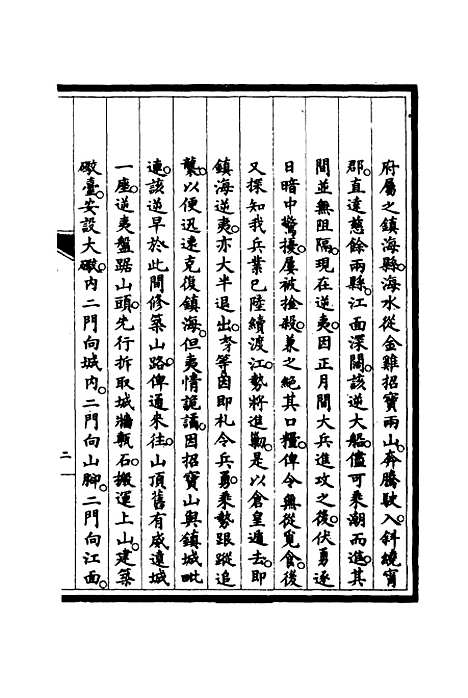 府屬之鎮海縣。海水從金雞招寶兩山。奔騰駛入。斜繞甯
郡。直達慈餘兩縣。江面深闊。該逆大船。儘可乘潮而進。其
間並無阻隔。現在逆夷。因正月間大兵進攻之後。伏勇逐
日暗中驚擾。屢被搶殺。兼之絕其口糧。俾令無從覓食。後
又探知我兵業已陸續渡江。勢將進勦。是以倉皇遁去。即
鎮海逆夷。亦大半退出。等因即札令兵勇。乘勢跟蹤追
襲。以便迅速克復鎮海。但夷情詭譎。因招寶山與鎮城毗
連。該逆早於此間修築山路。俾通來往。山頂舊有威遠城
一座。逆夷盤踞山頭。先行拆取城牆甎石。搬運上山。建築
礮臺。安設大礮。內二門向城內。二門向山腳。二門向江面。
二